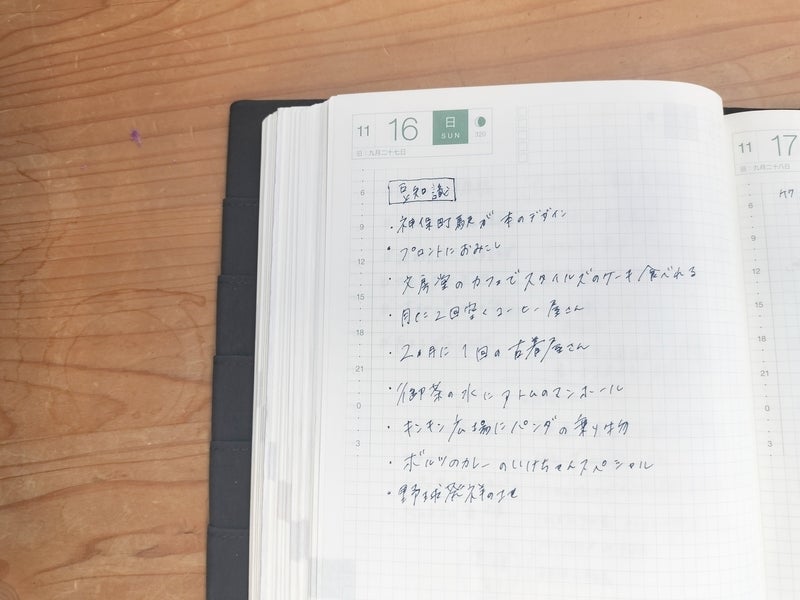 11 16 日 SUN 320
日・九月二十七日
豆知識
・神保町駅が本のデザイン
・フロントにおみこし
・文房堂のカフェでスタイルズのケーキ食べれる
・月に2回空くコーヒー屋さん
・2ヵ月に1回の古着屋さん
・御茶の水にアトムのマンホール
・キンキン広場にパンダの乗り物
・ボルツのカレーのいけちゃんスペシャル
・野球発祥の地
6
9
12
15
18
21
0
3
11 17
月・九月二十八日
6
9
12
15
18
21
0
3